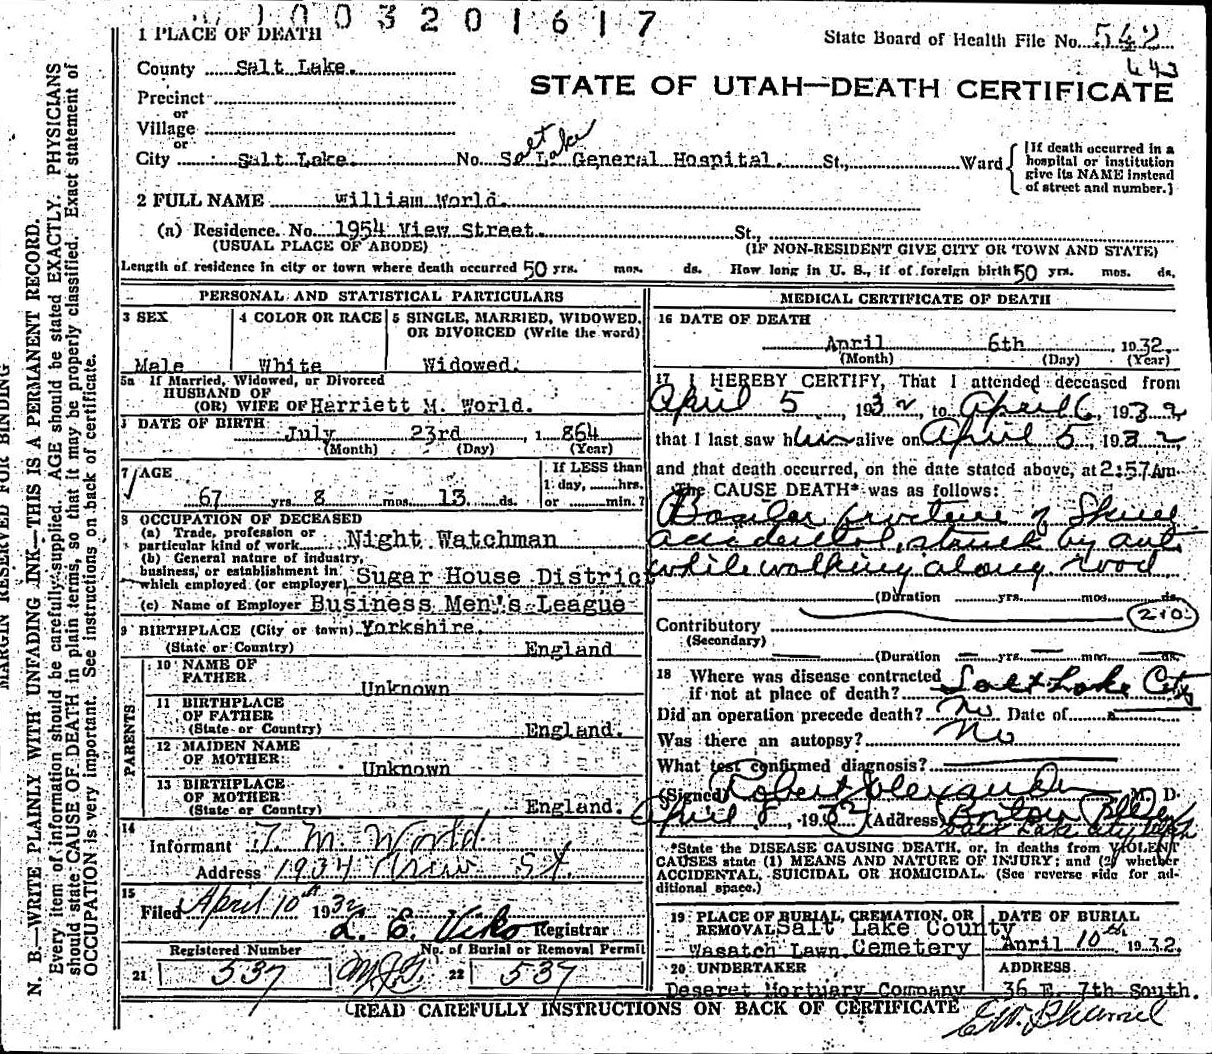 1003201617
1 PLACE OF DEATH
State Board of Health File No. 542
443
County Salt Lake.
STATE OF UTAH—DEATH CERTIFICATE
Precinct
or
Village
or
City Salt Lake. No. Salt Lake General Hospital. St., Ward
[If death occurred in a hospital or institution give its NAME instead of street and number.]
2 FULL NAME William World.
(a) Residence. No. 1954 View Street. St.,
(USUAL PLACE OF ABODE) (IF NON-RESIDENT GIVE CITY OR TOWN AND STATE)
Length of residence in city or town where death occurred 50 yrs. mos. ds. How long in U. S., if of foreign birth 50 yrs. mos. ds.
PERSONAL AND STATISTICAL PARTICULARS
3 SEX
Male
4 COLOR OR RACE
White
5 SINGLE, MARRIED, WIDOWED, OR DIVORCED (Write the word)
Widowed.
5a If Married, Widowed, or Divorced
HUSBAND OF
(OR) WIFE OF Harriett M. World.
DATE OF BIRTH
July 23rd, 1 864
(Month) (Day) (Year)
7 AGE
67 yrs. 8 mos. 13 ds.
If LESS than
1 day, hrs.
or min.?
8 OCCUPATION OF DECEASED
(a) Trade, profession or
particular kind of work Night Watchman
(b) General nature of industry,
business, or establishment in
which employed (or employer) Sugar House District
(c) Name of Employer Business Men's League
9 BIRTHPLACE (City or town) Yorkshire.
(State or Country) England
PARENTS
10 NAME OF
FATHER Unknown
11 BIRTHPLACE
OF FATHER
(State or Country) England.
12 MAIDEN NAME
OF MOTHER Unknown
13 BIRTHPLACE
OF MOTHER
(State or Country) England.
14
Informant T. M. World
Address 1934 View St.
15
Filed April 10th 1932
L. E. Viko Registrar
Registered Number No. of Burial or Removal Permit
21 537 22 537
MEDICAL CERTIFICATE OF DEATH
16 DATE OF DEATH
April 6th 1932.
(Month) (Day) (Year)
17 I HEREBY CERTIFY, That I attended deceased from
April 5, 1932, to April 6, 1932
that I last saw him alive on April 5, 1932
and that death occurred, on the date stated above, at 2:57 Am.
The CAUSE DEATH* was as follows:
Basilar fracture of Skull
accidental, struck by auto
while walking along road
(Duration yrs. mos. ds.
210
Contributory
(Secondary)
(Duration yrs. mos. ds.
18 Where was disease contracted
if not at place of death? Salt Lake City
Did an operation precede death? No Date of
Was there an autopsy? No
What test confirmed diagnosis?
(Signed) Robert Alexander M. D.
April 8, 1932 (Address) Boston Bldg
Salt Lake City Utah
*State the DISEASE CAUSING DEATH, or, in deaths from VIOLENT
CAUSES state (1) MEANS AND NATURE OF INJURY; and (2) whether
ACCIDENTAL, SUICIDAL OR HOMICIDAL. (See reverse side for ad-
ditional space.)
19 PLACE OF BURIAL, CREMATION, OR
REMOVAL Salt Lake County
Wasatch Lawn Cemetery
DATE OF BURIAL
April 10th 1932.
20 UNDERTAKER
Deseret Mortuary Company
ADDRESS
36 E. 7th South.
READ CAREFULLY INSTRUCTIONS ON BACK OF CERTIFICATE
MARGIN RESERVED FOR BINDING
N. B.—WRITE PLAINLY WITH UNFADING INK—THIS IS A PERMANENT RECORD.
Every item of information should be carefully supplied. AGE should be stated EXACTLY. PHYSICIANS
should state CAUSE OF DEATH in plain terms, so that it may be properly classified. Exact statement of
OCCUPATION is very important. See instructions on back of certificate.